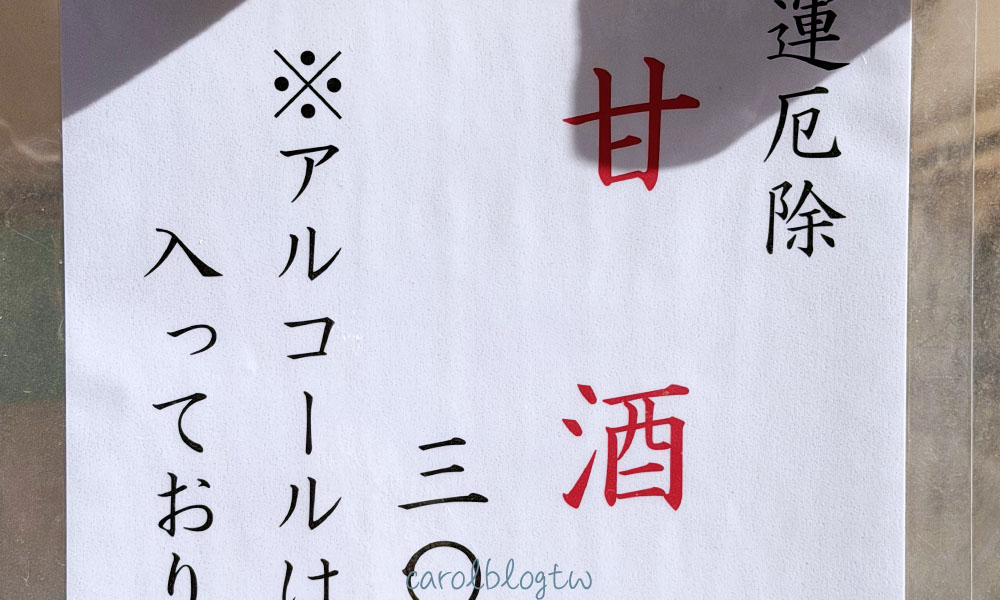 運厄除
甘酒
三〇
※アルコールは
入っており
carolblogtw